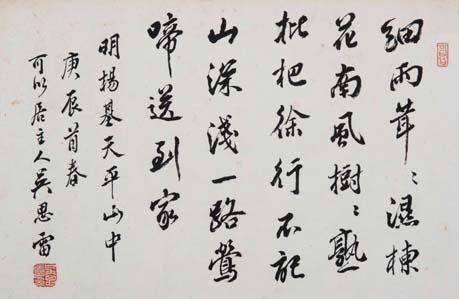 细雨茸々湿楝
花南风树々熟
枇杷徐行不记
山深浅一路莺
啼送到家
明杨基天平山中
庚辰首春
可以居主人吴思雷